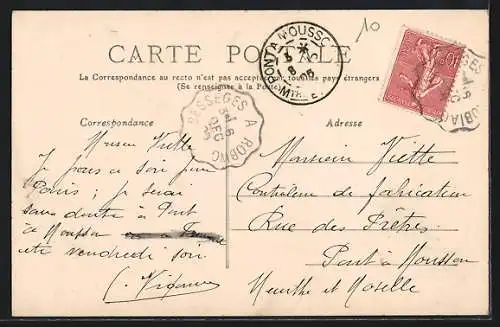 10
CARTE POSTALE
La Correspondance au recto n'est pas acceptée par tous pays étrangers
(Se renseigner à la Poste)
PONT A MOUSSON
8 05
BESSEGES A ROBIAC
6
DEC
05
Correspondance
Adresse
Monsieur Viette
Je pars ce soir pour
Paris ; je serai
sans doute à Pont
à Mousson
vendredi soir.
Monsieur Viette
Controleur de fabrication
Rue des Prêtres
Pont à Mousson
Meurthe et Moselle